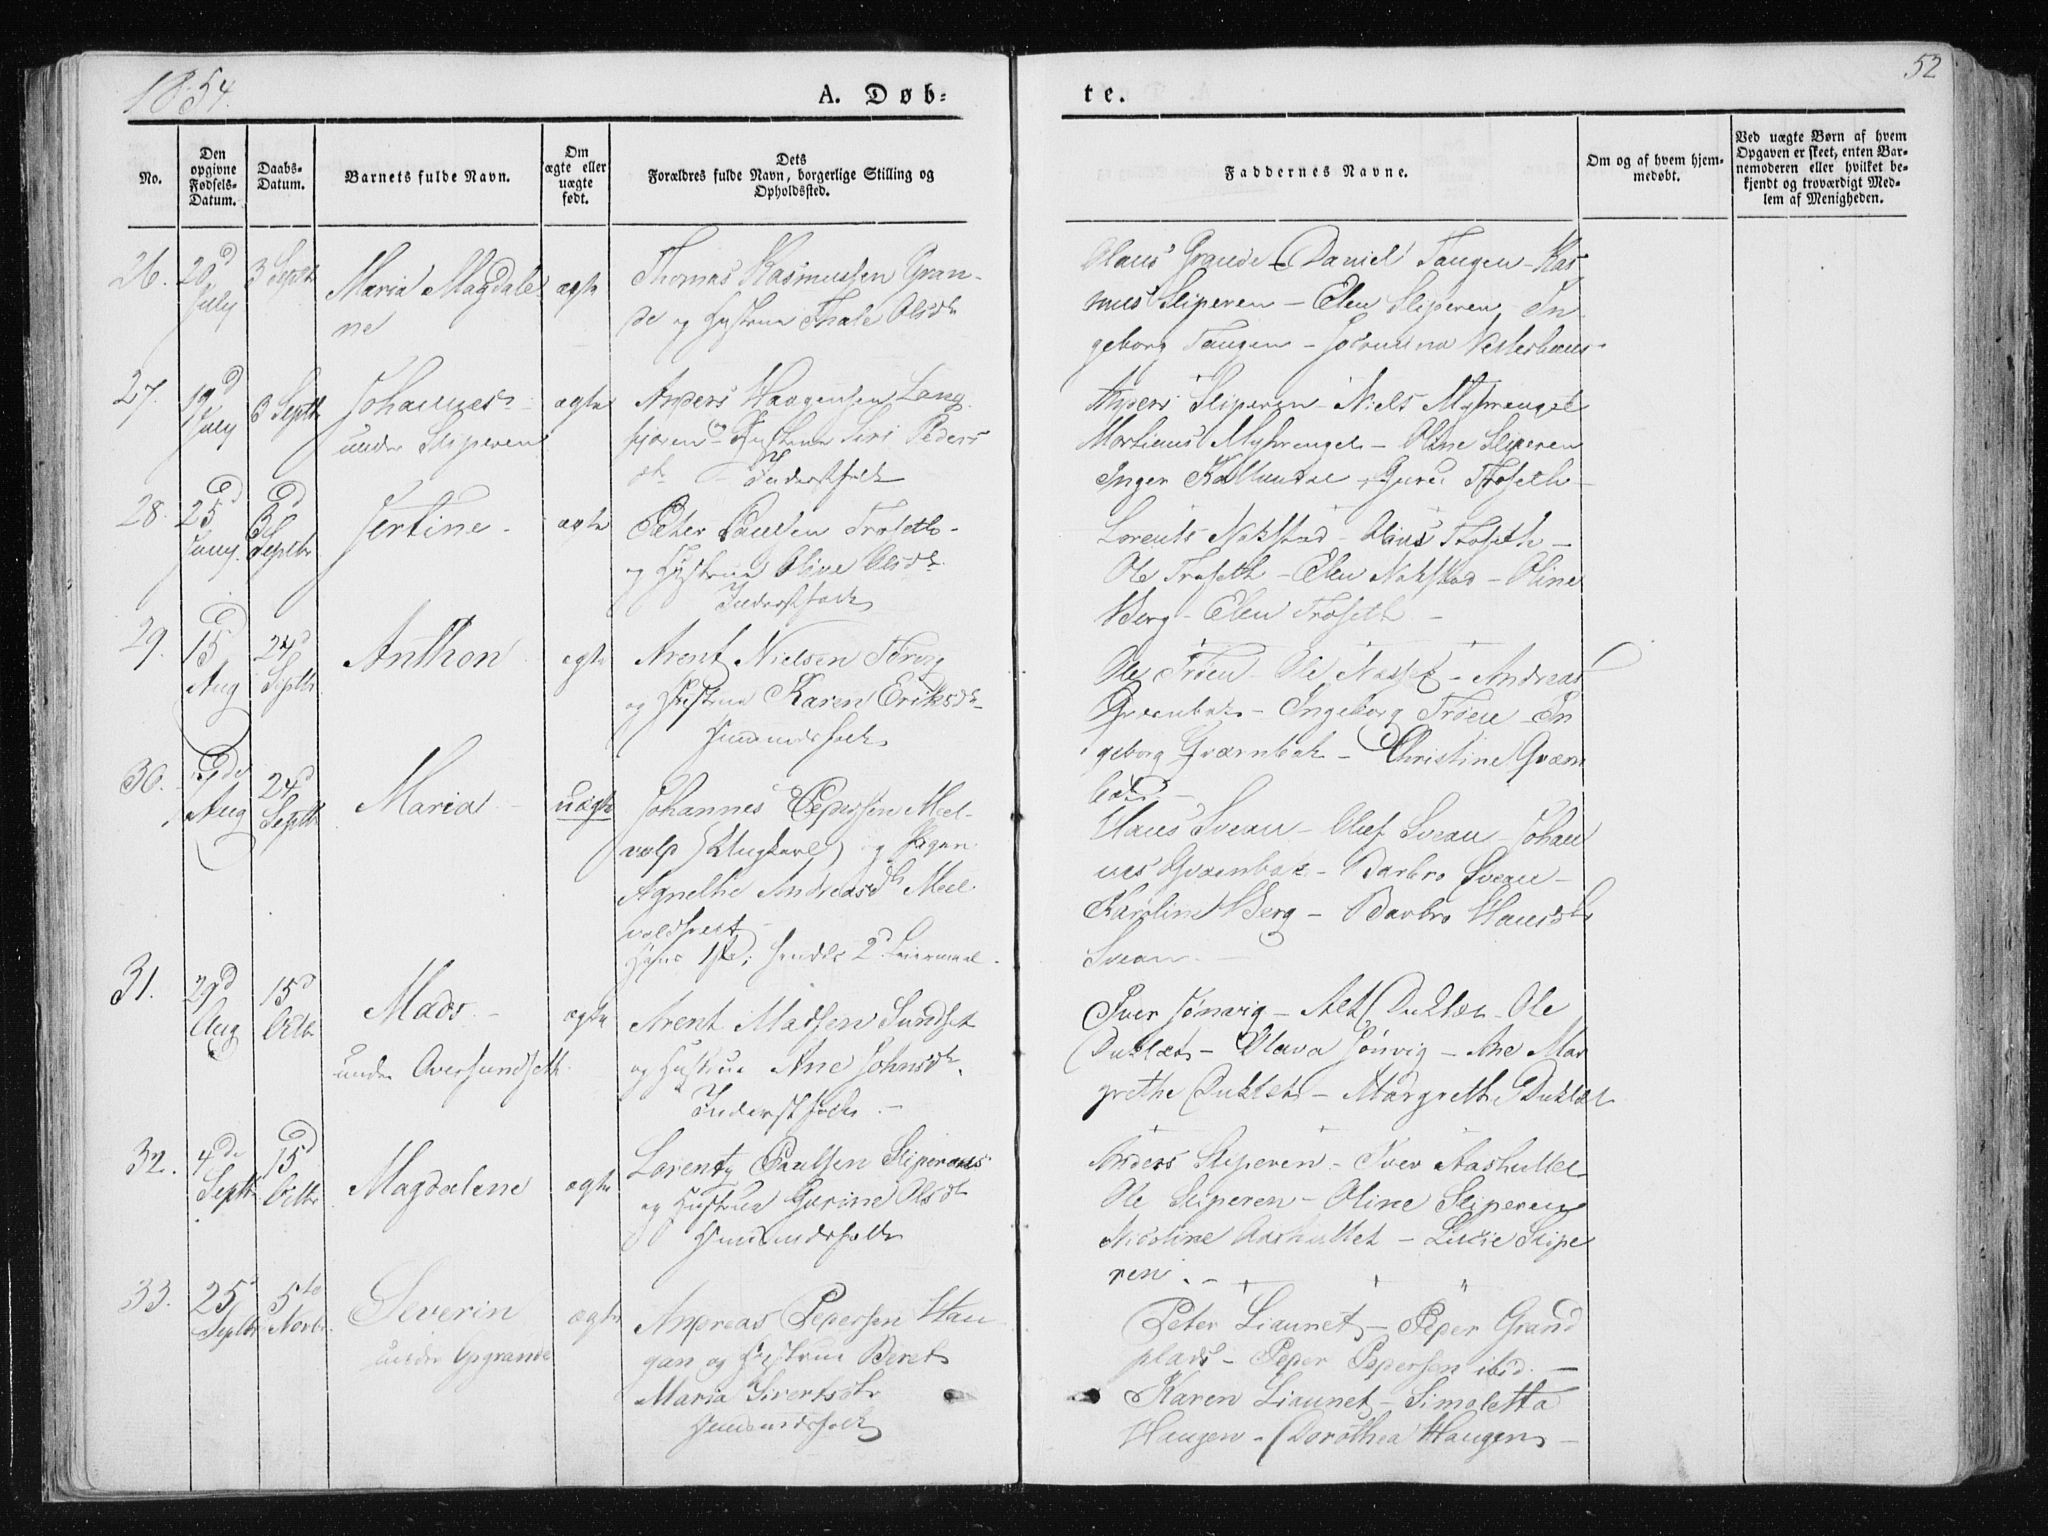 1854.
A. Døb-
te.
52
No.
Den opgivne Fødsels-Datum.
Daabs-Datum.
Barnets fulde Navn.
Om ægte eller uægte født.
Dets Forældres fulde Navn, borgerlige Stilling og Opholdssted.
Faddernes Navne.
Om og af hvem hjem-medøbt.
Ved uægte Børn af hvem Opgaven er skeet, enten Bar-nemoderen eller hvilket be-kjendt og troværdigt Med-lem af Menigheden.
26. 20d July
3 Septbr
Maria Magdale-
ne
ægte
Thomas Rasmussen Gran-
de og Hustrue Thale Olsdtr
Olaus Grande - Daniel Taugen - Ras
mus Sliperen - Elen Sliperen - In
geborg Taugen -
27. 19d July
3 Septbr
Johannes
under Sliperen
ægte
Anders Haagensen Lang
og Hustrue Siri Peders
dtr - Inderstfolk
Anders Sliperen - Niels Myhrengel
Mortinus Myhrengel - Oline Sliperen
Inger - Guru Troseth -
28. 25d
3d Septbr
Jertine -
ægte
Peter Paulsen Troseth -
og Hustrue Oline Olsdtr
Inderstfolk
Lorents Nakstad - Olaus Troseth -
Ole Troseth - Elen Nakstad - Oline
Berg - Elen Troseth -
29. 15d Aug
24d Septbr
Anthon
ægte
Arent Nielsen
og Hustrue Karen Eriksdtr
Huusmandsfolk
Ole Trøen - Ole Nasset - Andreas
Qvernbak - Ingeborg Trøen - In
geborg Qværnbak - Christine Qværn
bak -
30. Aug
24d Septbr
Maria -
uægte
Johannes Pedersen Mel-
vold (Ungkarl) og Pigen
Agnethe Andreasdtr Mel
voldhest -
Hans 1ste, hendes 2d Leiermaal -
Hans Sveau - Oluf Sveau - Johan
nes Qvernbak - Barbro Sveau -
Karoline Berg - Barbro Hansdtr
Sveau -
31. 29d Aug
15d Octbr
Mads -
under Oversundseth.
ægte
Arent Madsen Sundset
og Hustrue Ane Johnsdtr.
Inderstfolk -
Iver Jønvig - Duklæt - Ole
Duklæt - Olava Jønvig - Ane Mar
grethe Duklæt - Margreth Duklæt
32. 4de Septbr
15d Octbr
Magdalene
ægte
Lorentz Paulsen Sliperen
og Hustrue Gurine Olsdtr
Huusmandsfolk
Anders Sliperen - Iver Aashullet
Ole Sliperen - Oline Sliperen
Nicoline Aashullet - Lucie Slipe
ren. -
33. 25 Septbr
5te Novbr.
Severin
under Opgrande
ægte
Andreas Pedersen Hau
gan og Hustrue Beret
Maria Sivertsdtr
Huusmandsfolk
Peter Liaunet - Peder Grand
plads - Peder Pedersen ibid. -
Karen Liaunet - Simoletta
Haugen - Dorothea Haugen -